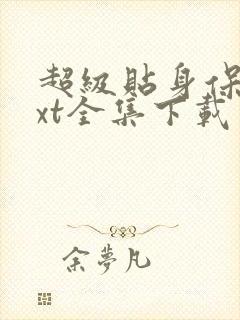 超級貼身保
xt全集下載
余夢凡